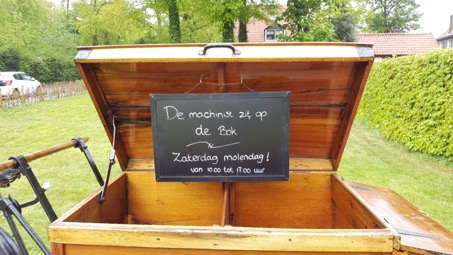 De machinist zit op
de Bok
Zaterdag molendag!
van 10.00 tot 17.00 uur